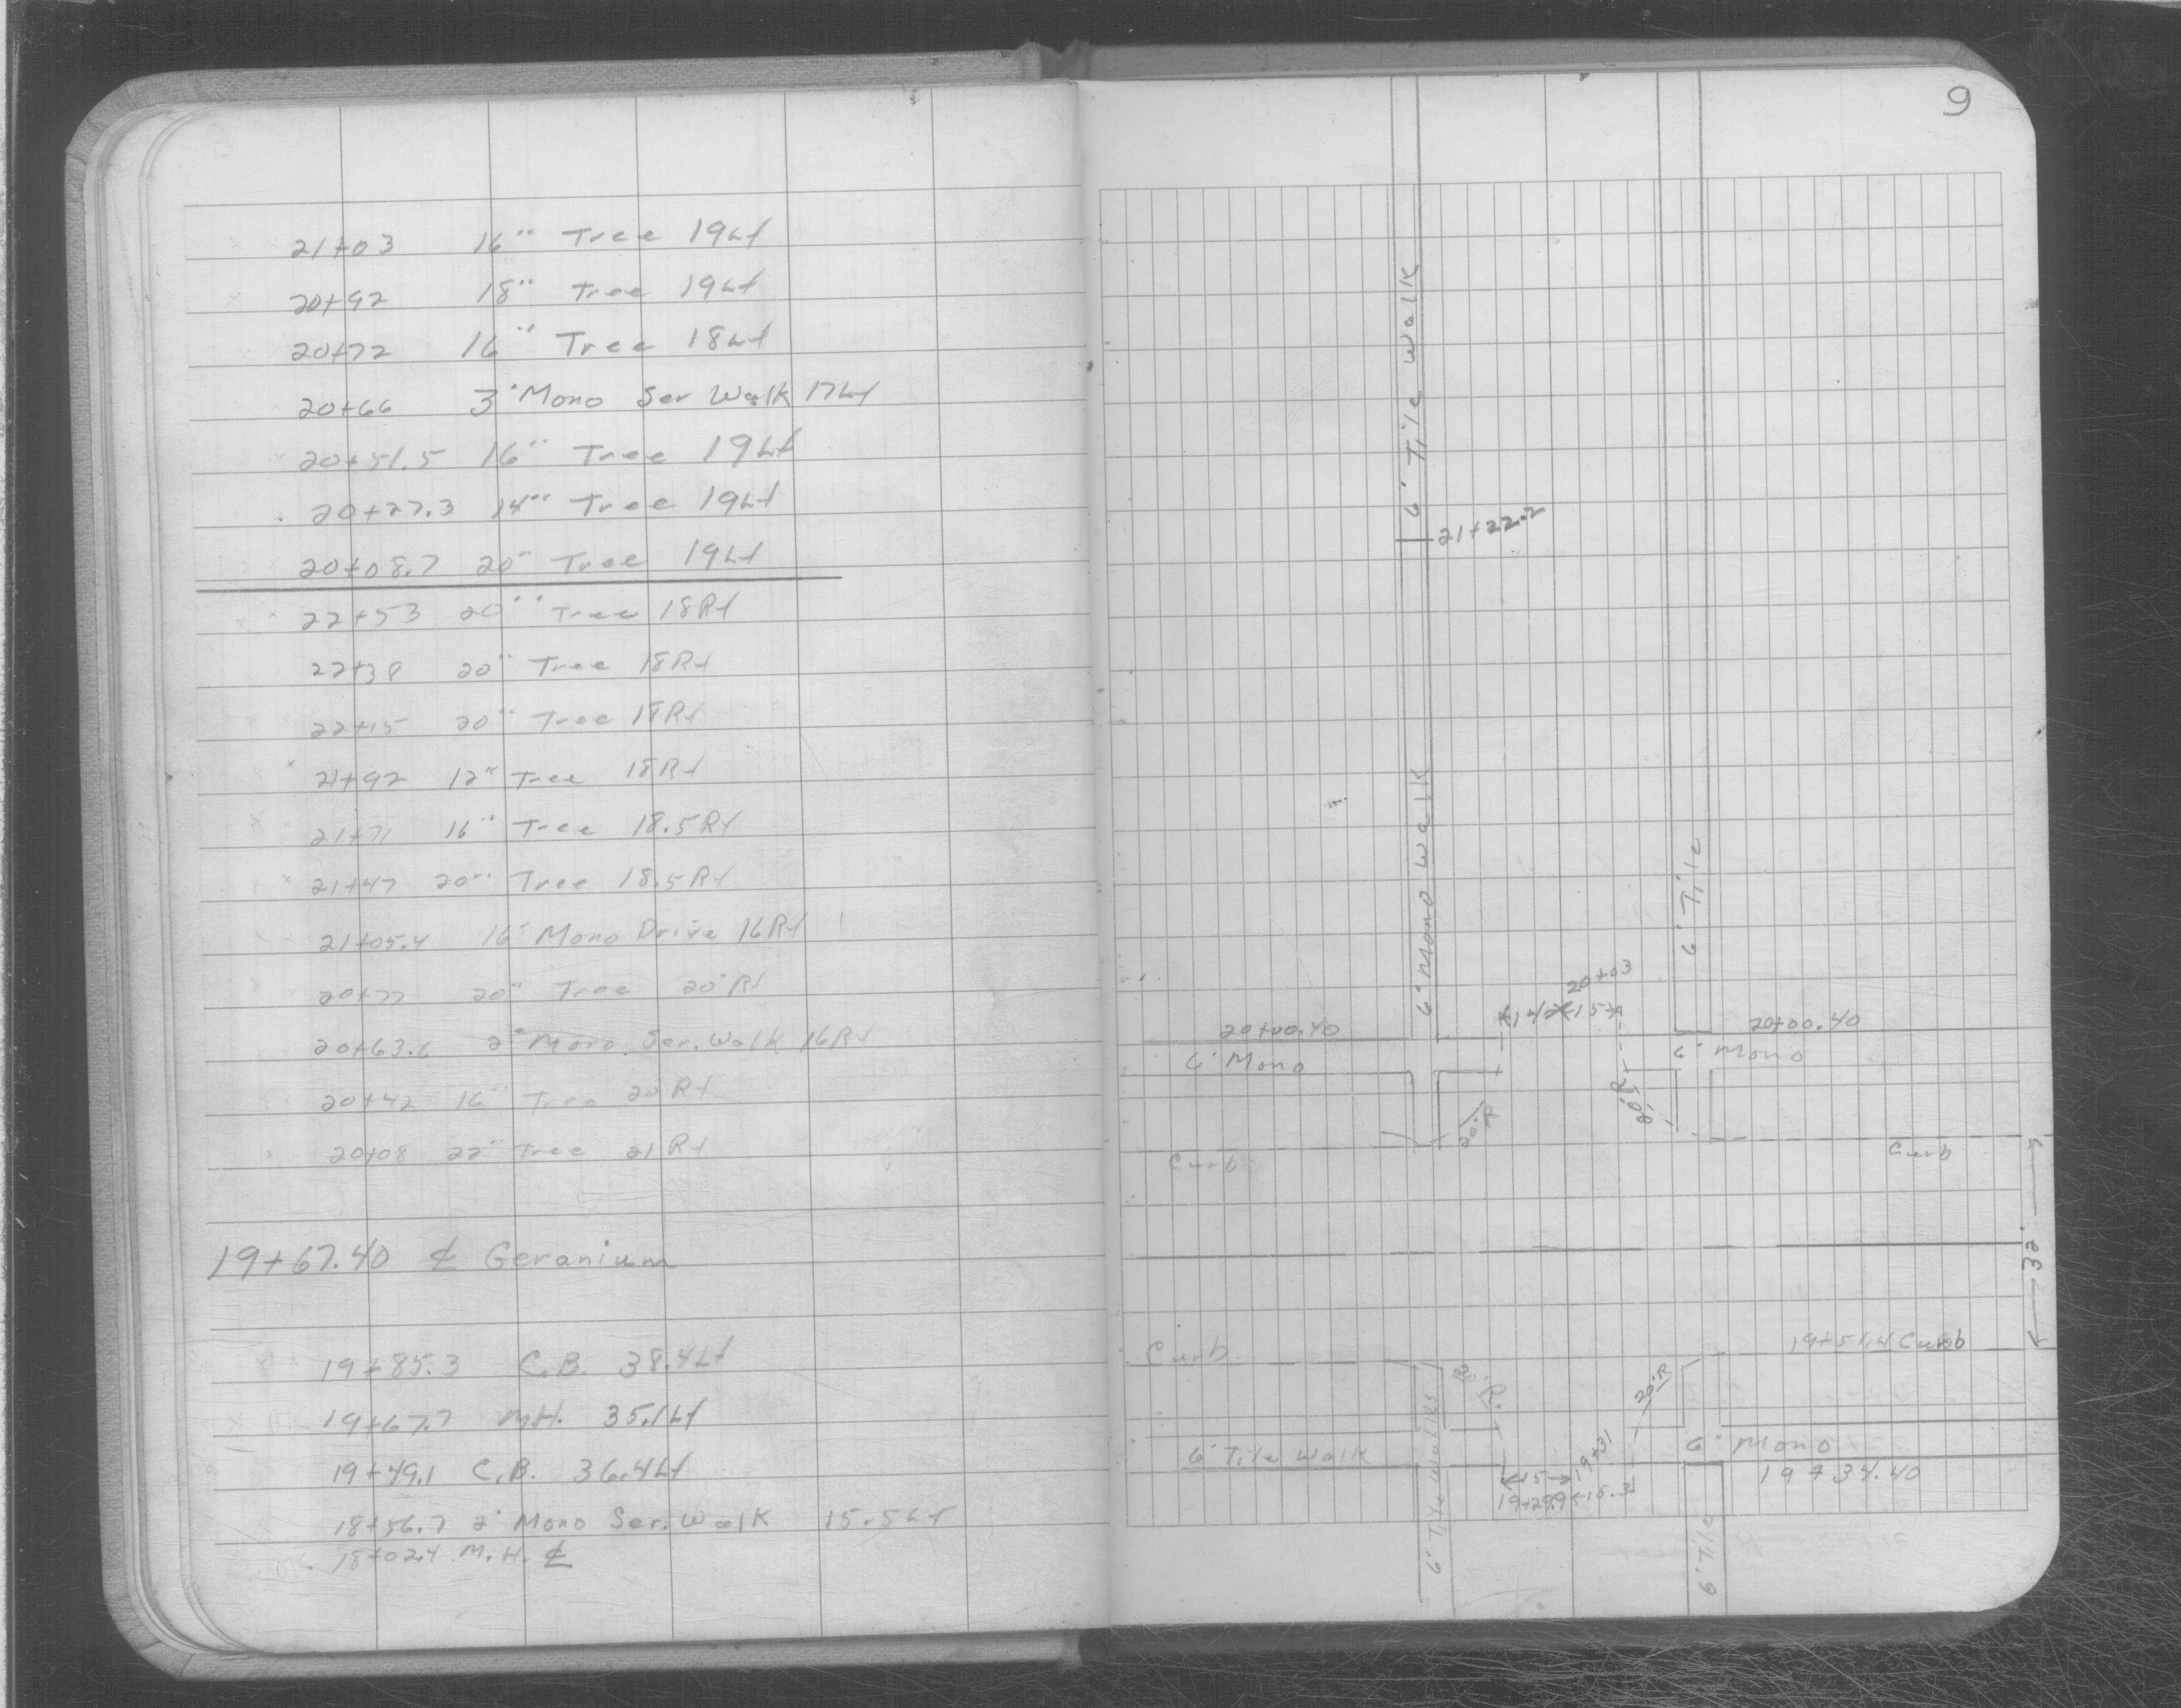 21+03 16" Tree 19Lt
20+92 18" Tree 19Lt
20+72 16" Tree 18Lt
20+66 3' Mono Ser Walk 17Lt
20+51.5 16" Tree 19Lt
20+27.3 14" Tree 19Lt
20+08.7 20" Tree 19Lt
22+53 20" Tree 18Rt
22+38 20" Tree 18Rt
22+15 20" Tree 18Rt
21+92 12" Tree 18Rt
21+71 16" Tree 18.5Rt
21+47 20" Tree 18.5Rt
21+05.4 16' Mono Drive 16Rt
20+77 20" Tree 20'Rt
20+63.6 2' Mono. Ser. Walk 16Rt
20+42 16" Tree 20Rt
20+08 22" Tree 21Rt
19+67.40 ℄ Geranium
19+85.3 C.B. 38.4Lt
19+67.7 M.H. 35.1Lt
19+49.1 C.B. 36.4Lt
18+56.7 2' Mono Ser. Walk 15.5Lt
18+02.4 M.H. ℄
9
6' Tile Walk
21+22.2
6' Mono Walk
6' Tile
20+03
14 15
20+00.40
20+00.40
6' Mono
6' Mono
20'R
20'R
Curb
Curb
32'
Curb
19+51.4 Curb
20'R
20'R
6' Tile Walk
6' Tile Walks
15
19+31
19+29.9 15.3
6' Mono
19+34.40
6' Tile